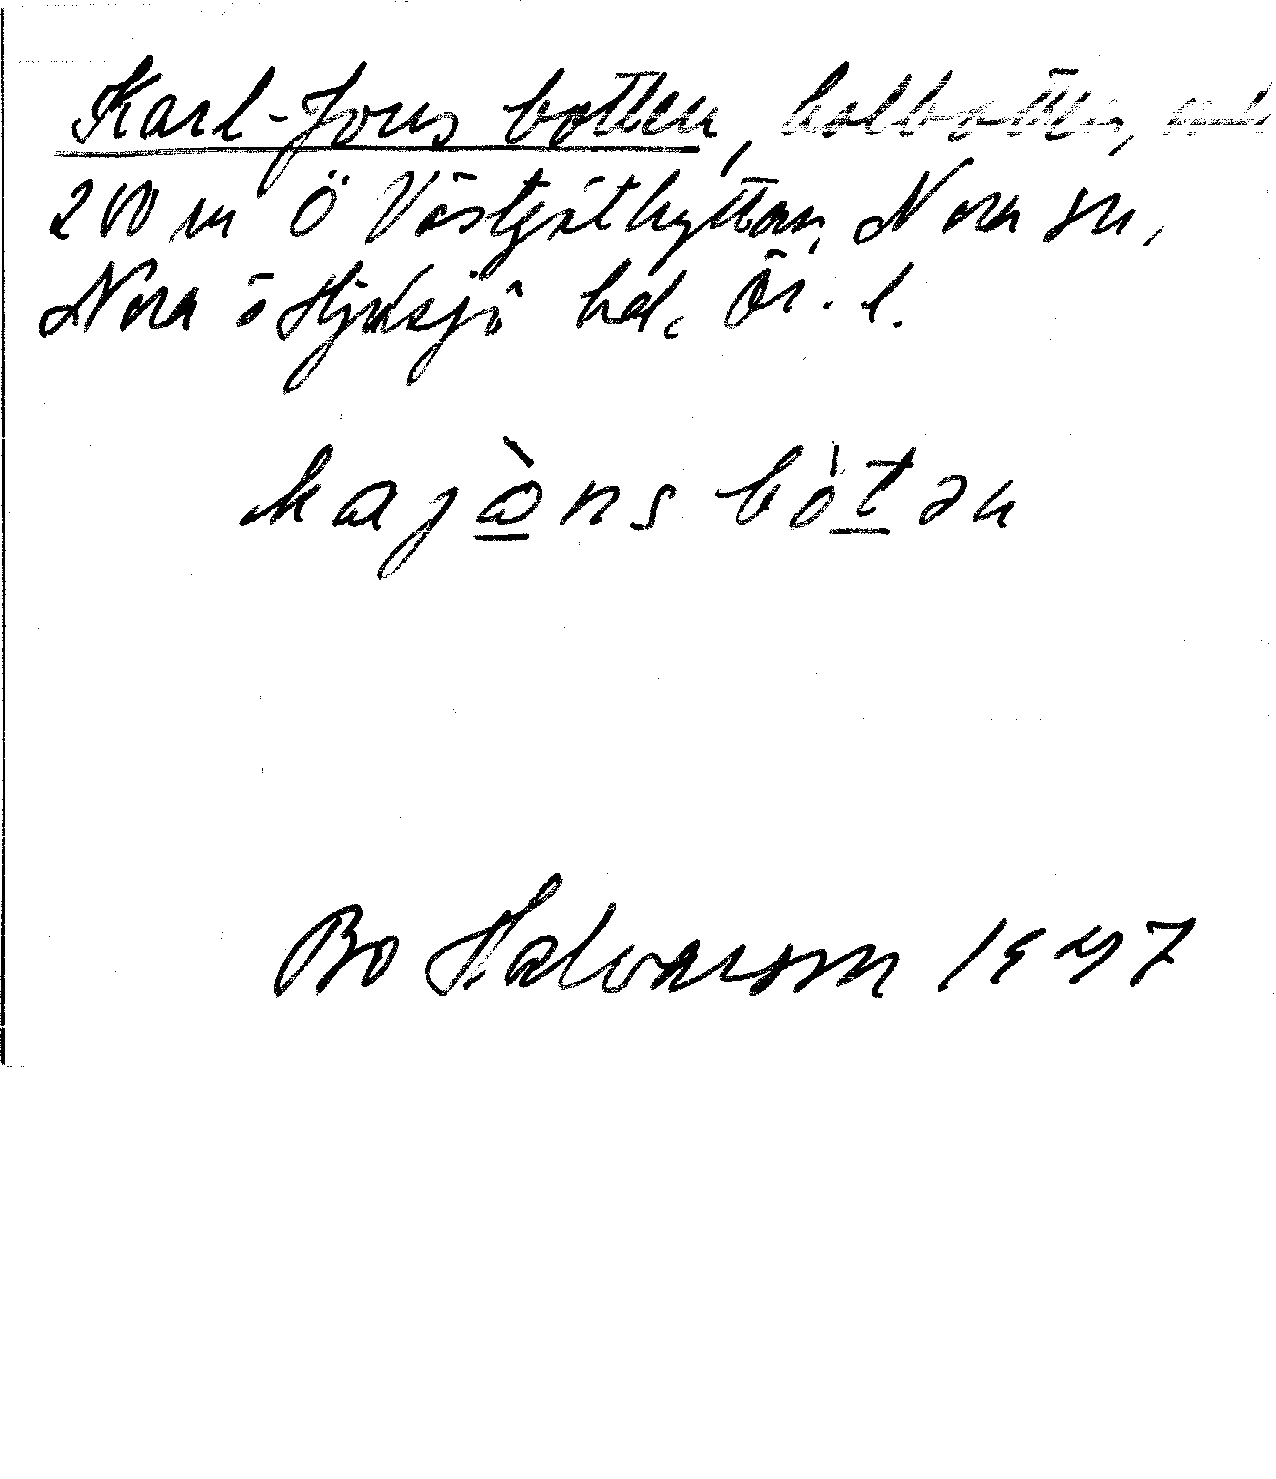 Karl-Jons botten, kolbotten,
200 m Ö Västgöthyttan, Nora sn,
Nora o Hjulsjö hd, Ör. l.
kajòns bòtən
Bo Halvarson 1947